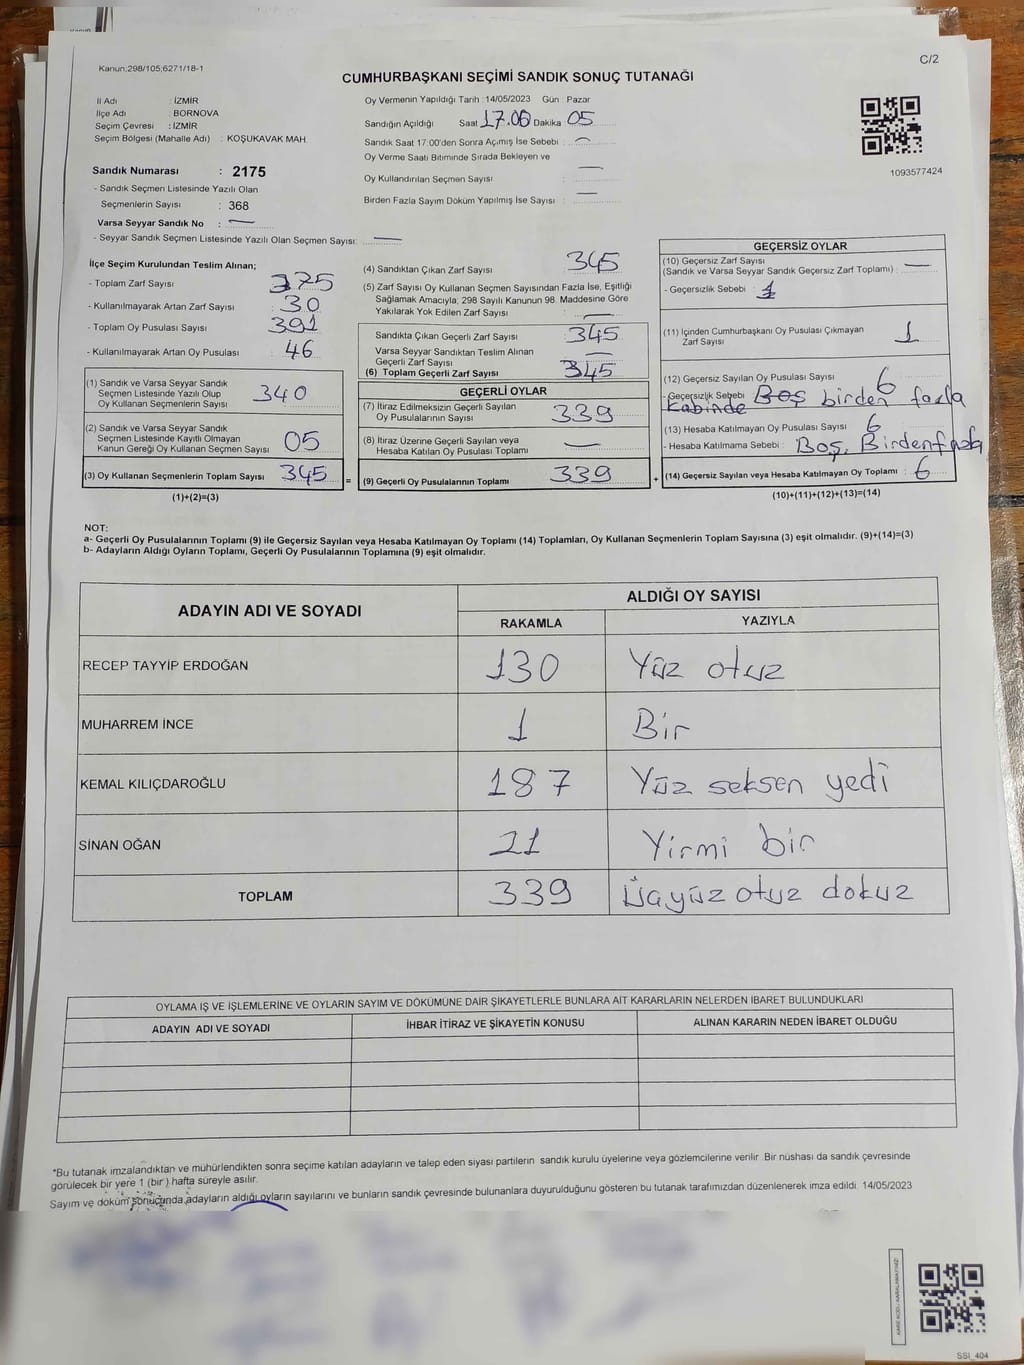 Kanun;298/105;6271/18-1
C/2
CUMHURBAŞKANI SEÇİMİ SANDIK SONUÇ TUTANAĞI
İl Adı : İZMİR
İlçe Adı : BORNOVA
Seçim Çevresi : İZMİR
Seçim Bölgesi (Mahalle Adı) : KOŞUKAVAK MAH.
Sandık Numarası : 2175
- Sandık Seçmen Listesinde Yazılı Olan
Seçmenlerin Sayısı : 368
Varsa Seyyar Sandık No : —
- Seyyar Sandık Seçmen Listesinde Yazılı Olan Seçmen Sayısı: —
Oy Vermenin Yapıldığı Tarih : 14/05/2023 Gün : Pazar
Sandığın Açıldığı Saat 17.06 Dakika 05
Sandık Saat 17:00'den Sonra Açımış İse Sebebi : —
Oy Verme Saati Bitiminde Sırada Bekleyen ve
Oy Kullandırılan Seçmen Sayısı : —
Birden Fazla Sayım Döküm Yapılmış İse Sayısı : —
1093577424
İlçe Seçim Kurulundan Teslim Alınan;
- Toplam Zarf Sayısı 375
- Kullanılmayarak Artan Zarf Sayısı : 30
- Toplam Oy Pusulası Sayısı : 391
- Kullanılmayarak Artan Oy Pusulası : 46
(1) Sandık ve Varsa Seyyar Sandık
Seçmen Listesinde Yazılı Olup
Oy Kullanan Seçmenlerin Sayısı 340
(2) Sandık ve Varsa Seyyar Sandık
Seçmen Listesinde Kayıtlı Olmayan
Kanun Gereği Oy Kullanan Seçmen Sayısı 05
(3) Oy Kullanan Seçmenlerin Toplam Sayısı 345 =
(1)+(2)=(3)
(4) Sandıktan Çıkan Zarf Sayısı 345
(5) Zarf Sayısı Oy Kullanan Seçmen Sayısından Fazla İse, Eşitliği
Sağlamak Amacıyla; 298 Sayılı Kanunun 98. Maddesine Göre
Yakılarak Yok Edilen Zarf Sayısı : —
Sandıkta Çıkan Geçerli Zarf Sayısı : 345
Varsa Seyyar Sandıktan Teslim Alınan
Geçerli Zarf Sayısı —
(6) Toplam Geçerli Zarf Sayısı 345
GEÇERLİ OYLAR
(7) İtiraz Edilmeksizin Geçerli Sayılan
Oy Pusulalarının Sayısı 339
(8) İtiraz Üzerine Geçerli Sayılan veya
Hesaba Katılan Oy Pusulası Toplamı —
(9) Geçerli Oy Pusulalarının Toplamı 339 +
GEÇERSİZ OYLAR
(10) Geçersiz Zarf Sayısı
(Sandık ve Varsa Seyyar Sandık Geçersiz Zarf Toplamı) : —
- Geçersizlik Sebebi : 1
(11) İçinden Cumhurbaşkanı Oy Pusulası Çıkmayan
Zarf Sayısı : 1
(12) Geçersiz Sayılan Oy Pusulası Sayısı : 6
- Geçersizlik Sebebi Boş birden fazla
Kabinde
(13) Hesaba Katılmayan Oy Pusulası Sayısı : 6
- Hesaba Katılmama Sebebi : Boş, Birden fazla
(14) Geçersiz Sayılan veya Hesaba Katılmayan Oy Toplamı : 6
(10)+(11)+(12)+(13)=(14)
NOT:
a- Geçerli Oy Pusulalarının Toplamı (9) ile Geçersiz Sayılan veya Hesaba Katılmayan Oy Toplamı (14) Toplamları, Oy Kullanan Seçmenlerin Toplam Sayısına (3) eşit olmalıdır. (9)+(14)=(3)
b- Adayların Aldığı Oyların Toplamı, Geçerli Oy Pusulalarının Toplamına (9) eşit olmalıdır.
ADAYIN ADI VE SOYADI
ALDIĞI OY SAYISI
RAKAMLA YAZIYLA
RECEP TAYYİP ERDOĞAN 130 Yüz otuz
MUHARREM İNCE 1 Bir
KEMAL KILIÇDAROĞLU 187 Yüz seksen yedi
SİNAN OĞAN 21 Yirmi bir
TOPLAM 339 Üçyüz otuz dokuz
OYLAMA İŞ VE İŞLEMLERİNE VE OYLARIN SAYIM VE DÖKÜMÜNE DAİR ŞİKAYETLERLE BUNLARA AİT KARARLARIN NELERDEN İBARET BULUNDUKLARI
ADAYIN ADI VE SOYADI İHBAR İTİRAZ VE ŞİKAYETİN KONUSU ALINAN KARARIN NEDEN İBARET OLDUĞU
*Bu tutanak imzalandıktan ve mühürlendikten sonra seçime katılan adayların ve talep eden siyasi partilerin sandık kurulu üyelerine veya gözlemcilerine verilir. Bir nüshası da sandık çevresinde
görülecek bir yere 1 (bir) hafta süreyle asılır.
Sayım ve döküm sonucunda,adayların aldığı oyların sayılarını ve bunların sandık çevresinde bulunanlara duyurulduğunu gösteren bu tutanak tarafımızdan düzenlenerek imza edildi. 14/05/2023
SSİ_404